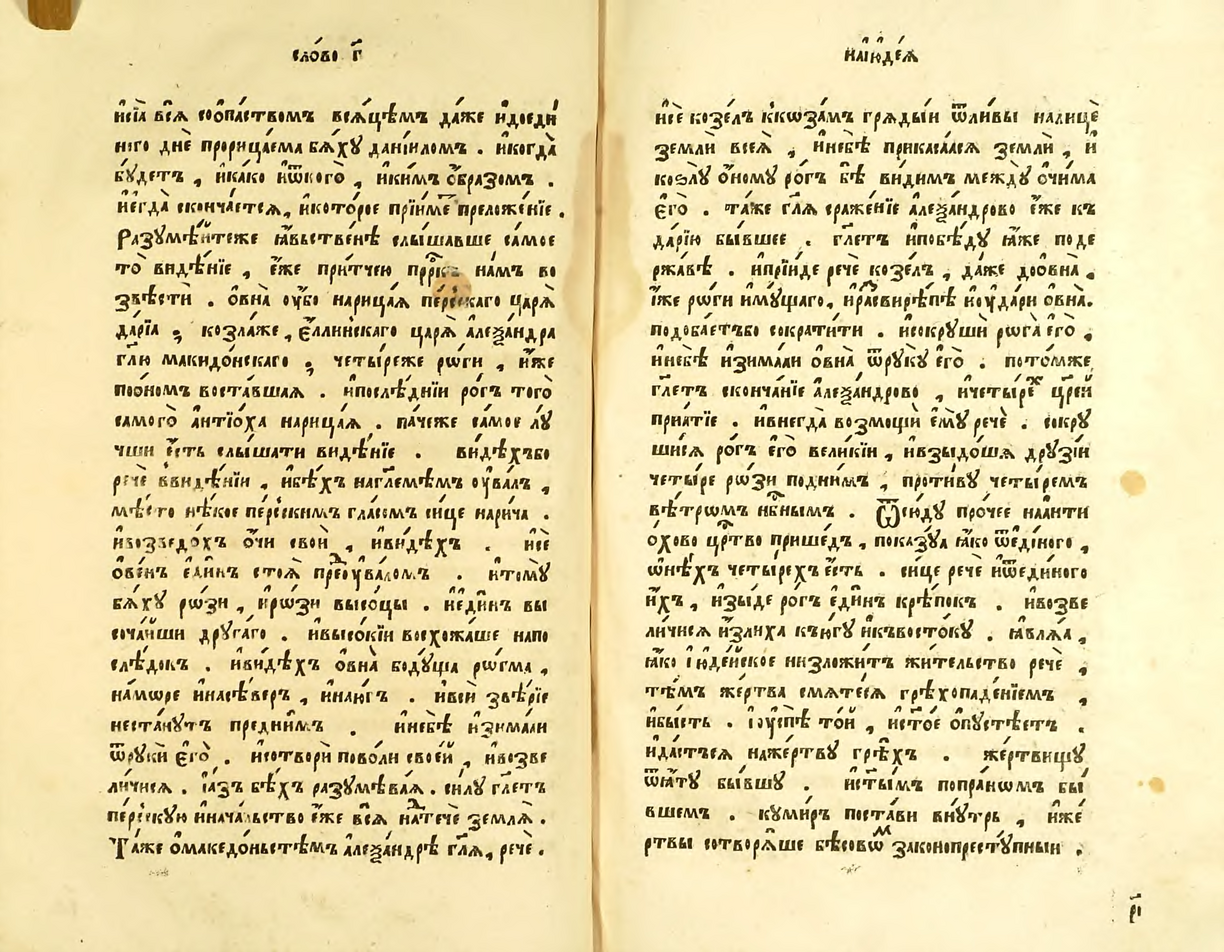 сло́во г҃
и҆сїѧ̀ всѧ̀ соо́паствомъ всѧ́цѣмъ да́же и҆доеди
ниго днѐ прорица́ема бѧ́хꙋ данїи́ломъ . и҆когда̀
бꙋ́детъ , и҆ка́ко и҆ѿкого̀ , и҆ки́мъ ѻ҆́бразомъ .
и҆є҆гда̀ сконча́етсѧ , и҆кото́рое прїи́ме преложе́нїе .
Разꙋмѣ́йтеже ꙗ҆́вьственѣ слы́шавше са́мое
то̀ видѣ́нїе , є҆́же при́тчею прⷪ҇ркъ на́мъ во
звѣ́сти . ѻ҆вна̀ ᲂу҆́бо нарица́ѧ пе́рскаго царѧ̀
да́рїа ; козла́же , є҆́ллинскаго царѧ̀ а҆леѯа́ндра
гл҃ю макидо́нскаго ; четы́реже рѡ́ги , и҆̀же
поо́номъ воста́вшаѧ . и҆послѣ́днїи ро́гъ того̀
самого̀ а҆нтїо́ха нарица́ѧ . па́чеже са́мое лꙋ́
чши є҆́сть слы́шати видѣ́нїе . ви́дѣхъбо
речѐ ввидѣ́нїи , и҆бѣ́хъ нагле́мѣмъ ᲂу҆ва́лъ ,
мѣ́сто нѣ́кое пе́рскимъ гла́сомъ си́це нарича̀ .
и҆возведо́хъ ѻ҆́чи свои̑ , и҆ви́дѣхъ . и҆сѐ
ѻ҆ве́нъ є҆ди́нъ стоѧ̀ преⷣᲂу҆ва́ломъ . и҆томꙋ̀
бѧ́хꙋ рѡ́зи , и҆рѡ́зи высо́цы . и҆є҆ди́нъ вы
соча́йши дрꙋга́го . и҆высо́кїи восхожа́ше напо
слѣ́докъ . и҆ви́дѣхъ ѻ҆вна̀ бодꙋ́ща рѡга́ма ,
намо́ре и҆насѣ́веръ , и҆наю́гъ . и҆вси̑ ѕвѣ́рїе
неста́нꙋтъ преⷣни́мъ . и҆небѣ̀ и҆зима́ѧи
ѿрꙋки̑ є҆гѡ̀ . и҆сотворѝ пово́ли свое́й , и҆возве
ли́чисѧ . і҆а́зъ бѣ́хъ разꙋмѣва́ѧ . си́лꙋ гл҃етъ
пе́рскꙋю и҆нача́льство є҆́же всѧ̀ наⷣтечѐ землѧ̀ .
Та́же ѻ҆македо́ньстѣмъ а҆леѯа́ндрѣ гл҃ѧ , речѐ .
на҆і҆ꙋде́ѧ
и҆сѐ козе́лъ ккѡза́мъ грѧды́и ѿли́вы налицѐ
землѝ всеѧ̀ , и҆небѣ̀ прикаса́ѧсѧ землѝ , и҆
козлꙋ̀ ѻ҆́номꙋ ро́гъ бѣ̀ ви́димъ междꙋ̀ ѻ҆чи́ма
є҆гѡ̀ . та́же гл҃ѧ сраже́нїе а҆леѯа́ндрово є҆́же къ
да́рїю бы́вшее . гл҃етъ и҆побѣ́дꙋ ꙗ҆́же поде
ржа́вѣ . и҆прїи́де речѐ козе́лъ , да́же доо҆вна̀ ,
і҆́же рѡ́ги и҆мꙋ́щаго , и҆разсвирѣ́пѣ и҆ᲂу҆да́ри ѻ҆вна̀ .
подоба́етъбо сократи́ти . и҆сокрꙋшѝ рѡга̀ є҆гѡ̀ ,
и҆небѣ̀ и҆зима́ѧи ѻ҆вна̀ ѿрꙋкꙋ̀ є҆гѡ̀ . пото́мже
гл҃етъ сконча́нїе а҆леѯа́ндрово , и҆четы́реⷯ цр҃ей
прїѧ́тїе . и҆внегда̀ возмощѝ є҆мꙋ̀ речѐ . сокрꙋ
ши́сѧ ро́гъ є҆гѡ̀ вели́кїи , и҆взыдо́шѧ дрꙋзі́и
четы́ре рѡ́зи подни́мъ , проти́вꙋ четы́ремъ
вѣ́трѡмъ нбⷭ҇нымъ . Ѿсю́дꙋ про́чее наа҆нти
ѻ҆́хово црⷭ҇тво прише́дъ , показꙋ́ѧ ꙗ҆́ко ѿе҆ди́ного ,
ѡ҆нѣ́хъ четы́рехъ є҆́сть . си́це речѐ и҆ѿе҆ди́ного
и҆́хъ , и҆зы́де ро́гъ є҆ди́нъ крѣ́покъ . и҆возве
ли́чисѧ и҆зли́ха къю́гꙋ и҆къвосто́кꙋ . ꙗ҆влѧ́ѧ ,
ꙗ҆́ко і҆ꙋде́йское низло́житъ жи́тельство речѐ ,
тѣ́мъ же́ртва смѧте́сѧ грѣхопаде́нїемъ ,
и҆бы́сть . і҆ᲂу҆спѣ̀ то́й , и҆ст҃о́е ѻ҆пꙋстѣ́етъ .
и҆да́стъсѧ наже́ртвꙋ грѣ́хъ . же́ртвищꙋ
ѿѧ́тꙋ бы́вшꙋ . и҆ст҃ы́мъ попра́нѡмъ бы́
вшемъ . кꙋми́ръ поста́ви внꙋ́трь , и҆же́
ртвы сотворѧ́ше бѣ́совѡⷨ законопрестꙋ́пныи .
р҃і